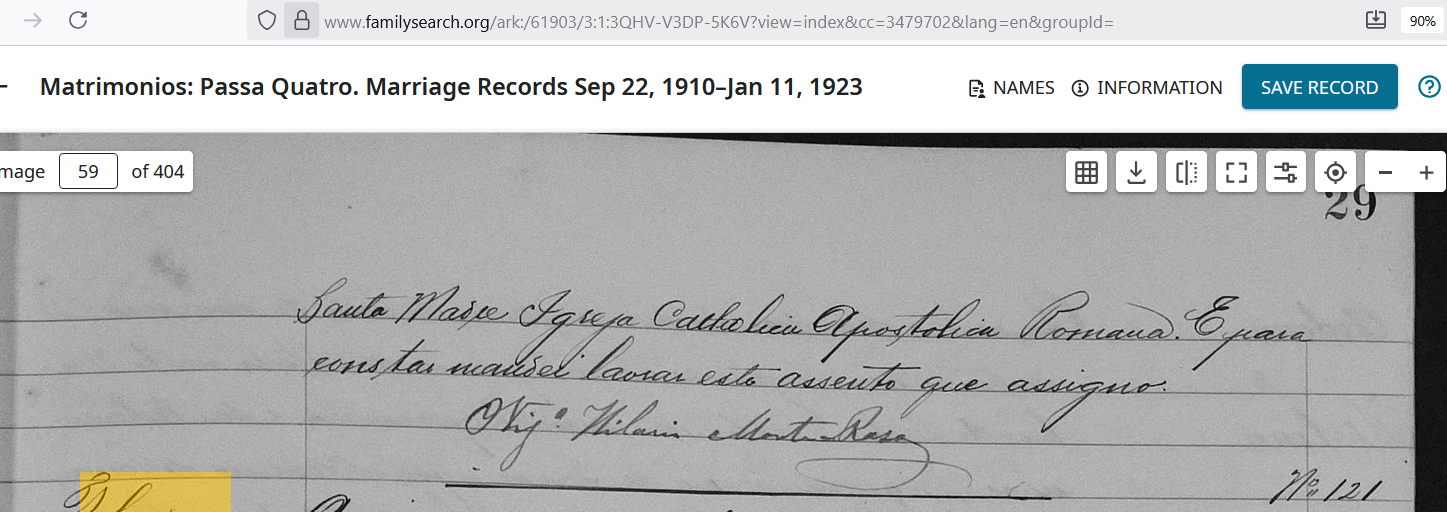 www.familysearch.org/ark:/61903/3:1:3QHV-V3DP-5K6V?view=index&cc=3479702&lang=en&groupId=
90%
Matrimonios: Passa Quatro. Marriage Records Sep 22, 1910–Jan 11, 1923
NAMES
INFORMATION
SAVE RECORD
mage 59 of 404
29
Santa Madre Igreja Catholica Apostolica Romana. E para
constar mandei lavrar este assento que assigno.
O Vigº Hilario Monte Raso
Nº 121